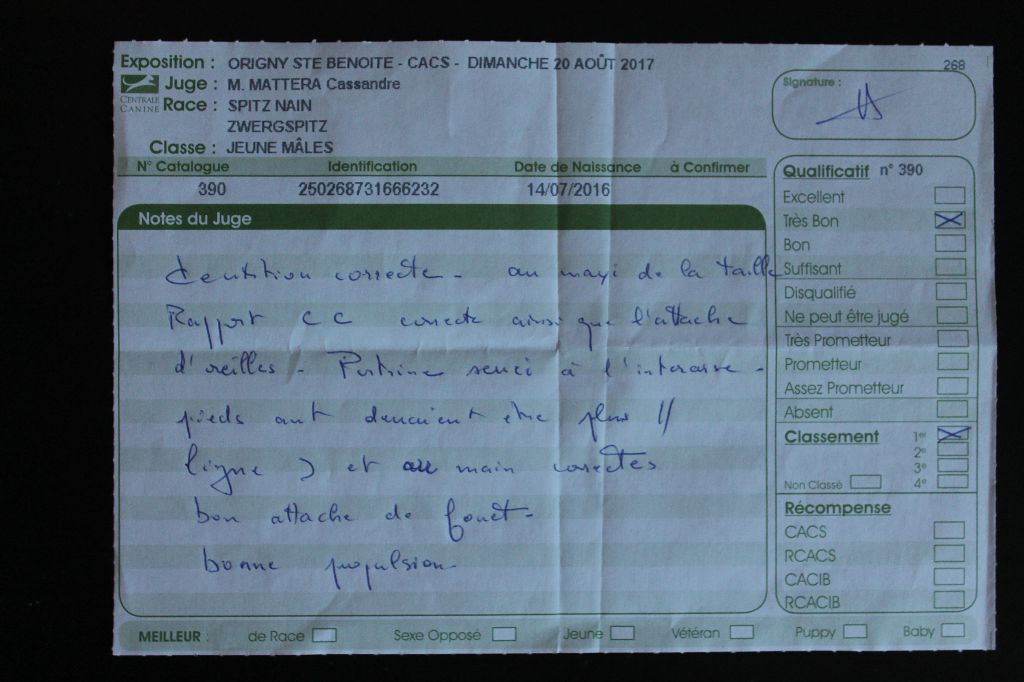 Exposition : ORIGNY STE BENOITE - CACS - DIMANCHE 20 AOÛT 2017
268
Juge : M. MATTERA Cassandre
CENTRALE CANINE
Race : SPITZ NAIN
ZWERGSPITZ
Classe : JEUNE MÂLES
Signature :
N° Catalogue Identification Date de Naissance à Confirmer
390 250268731666232 14/07/2016
Notes du Juge
dentition correcte - au maxi de la taille
Rapport CC correcte ainsi que l'attache
d'oreilles - Poitrine
pieds ant devraient être plus //
ligne et main correctes
bon attache de fouet -
bonne propulsion -
Qualificatif n° 390
Excellent
Très Bon
Bon
Suffisant
Disqualifié
Ne peut être jugé
Très Prometteur
Prometteur
Assez Prometteur
Absent
Classement 1er
2e
3e
Non Classé 4e
Récompense
CACS
RCACS
CACIB
RCACIB
MEILLEUR : de Race Sexe Opposé Jeune Vétéran Puppy Baby